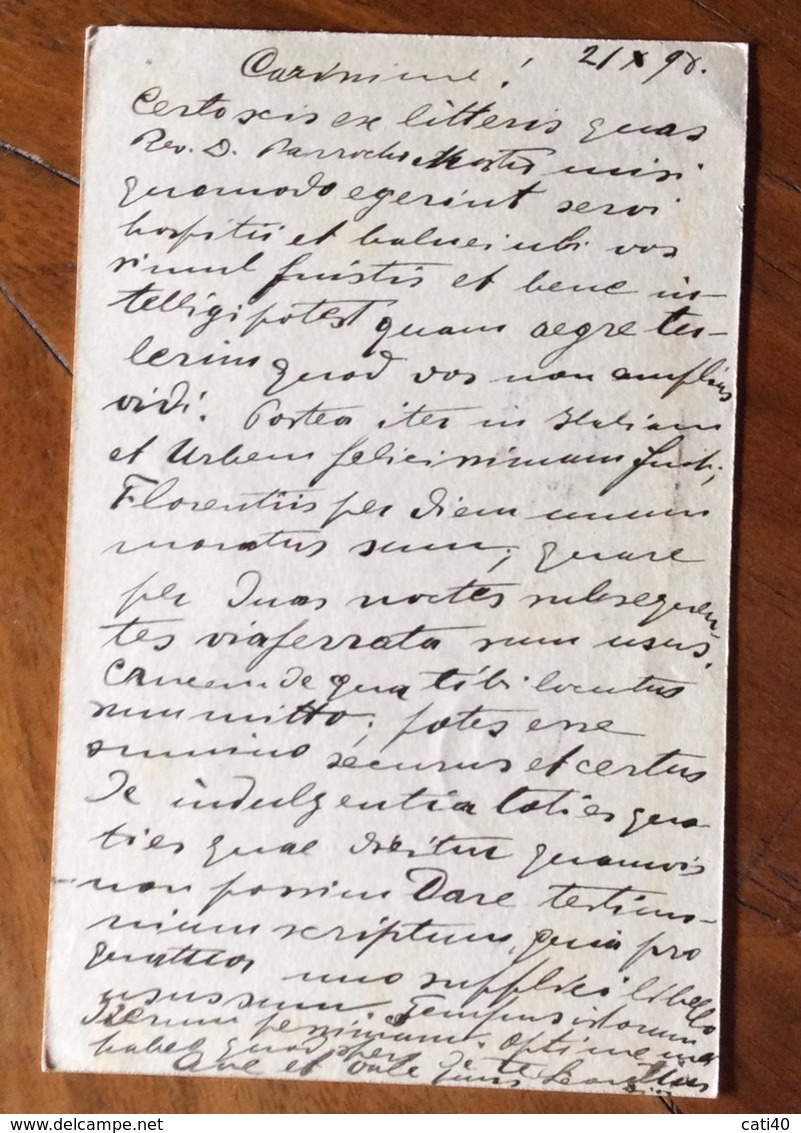 Carissime! 21 X 98.
Certo scis ex litteris quas
Rev. D. Parrocho misi
quomodo egerint servi
hospitii et balnei ubi vos
simul fuistis et bene in-
telligi potest quam aegre tu-
lerim quod vos non amplius
vidi. Postea iter in Italiam
et Urbem felicissimum fuit;
Florentiis per diem unum
moratus sum; quare
per duas noctes subsequen-
tes viaferrata sum usus.
Crucem de qua tibi locutus
sum mitto; potes esse
omnino securus et certus
de indulgentia toties quo-
ties quae dicitur quamvis
non possim dare testimo-
nium scriptum, quia pro
quattuor uno supplici libello
usus sum. Tempus istorum
dierum pessimum. Optime me
habeo
Ave et vale
cati40